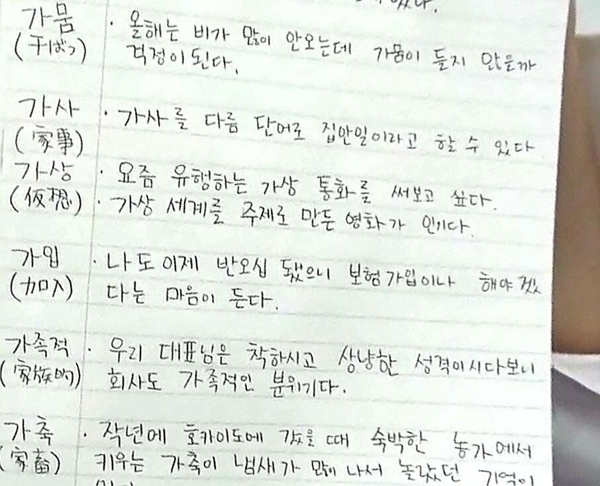 가뭄 · 올해는 비가 많이 안오는데 가뭄이 들지 않을까
(干ばつ) 걱정이 된다.
가사 · 가사를 다름 단어로 집안일이라고 할 수 있다
(家事)
가상 · 요즘 유행하는 가상 통화를 써보고 싶다.
(仮想) · 가상 세계를 주제로 만든 영화가 인기다.
가입 · 나도 이제 반오십 됐으니 보험가입이나 해야겠
(加入) 다는 마음이 든다.
가족적 · 우리 대표님은 착하시고 상냥한 성격이시다보니
(家族的) 회사도 가족적인 분위기다.
가축 · 작년에 호카이도에 갔을 때 숙박한 농가에서
(家畜) 키우는 가축이 냄새가 많이 나서 놀랐던 기억이